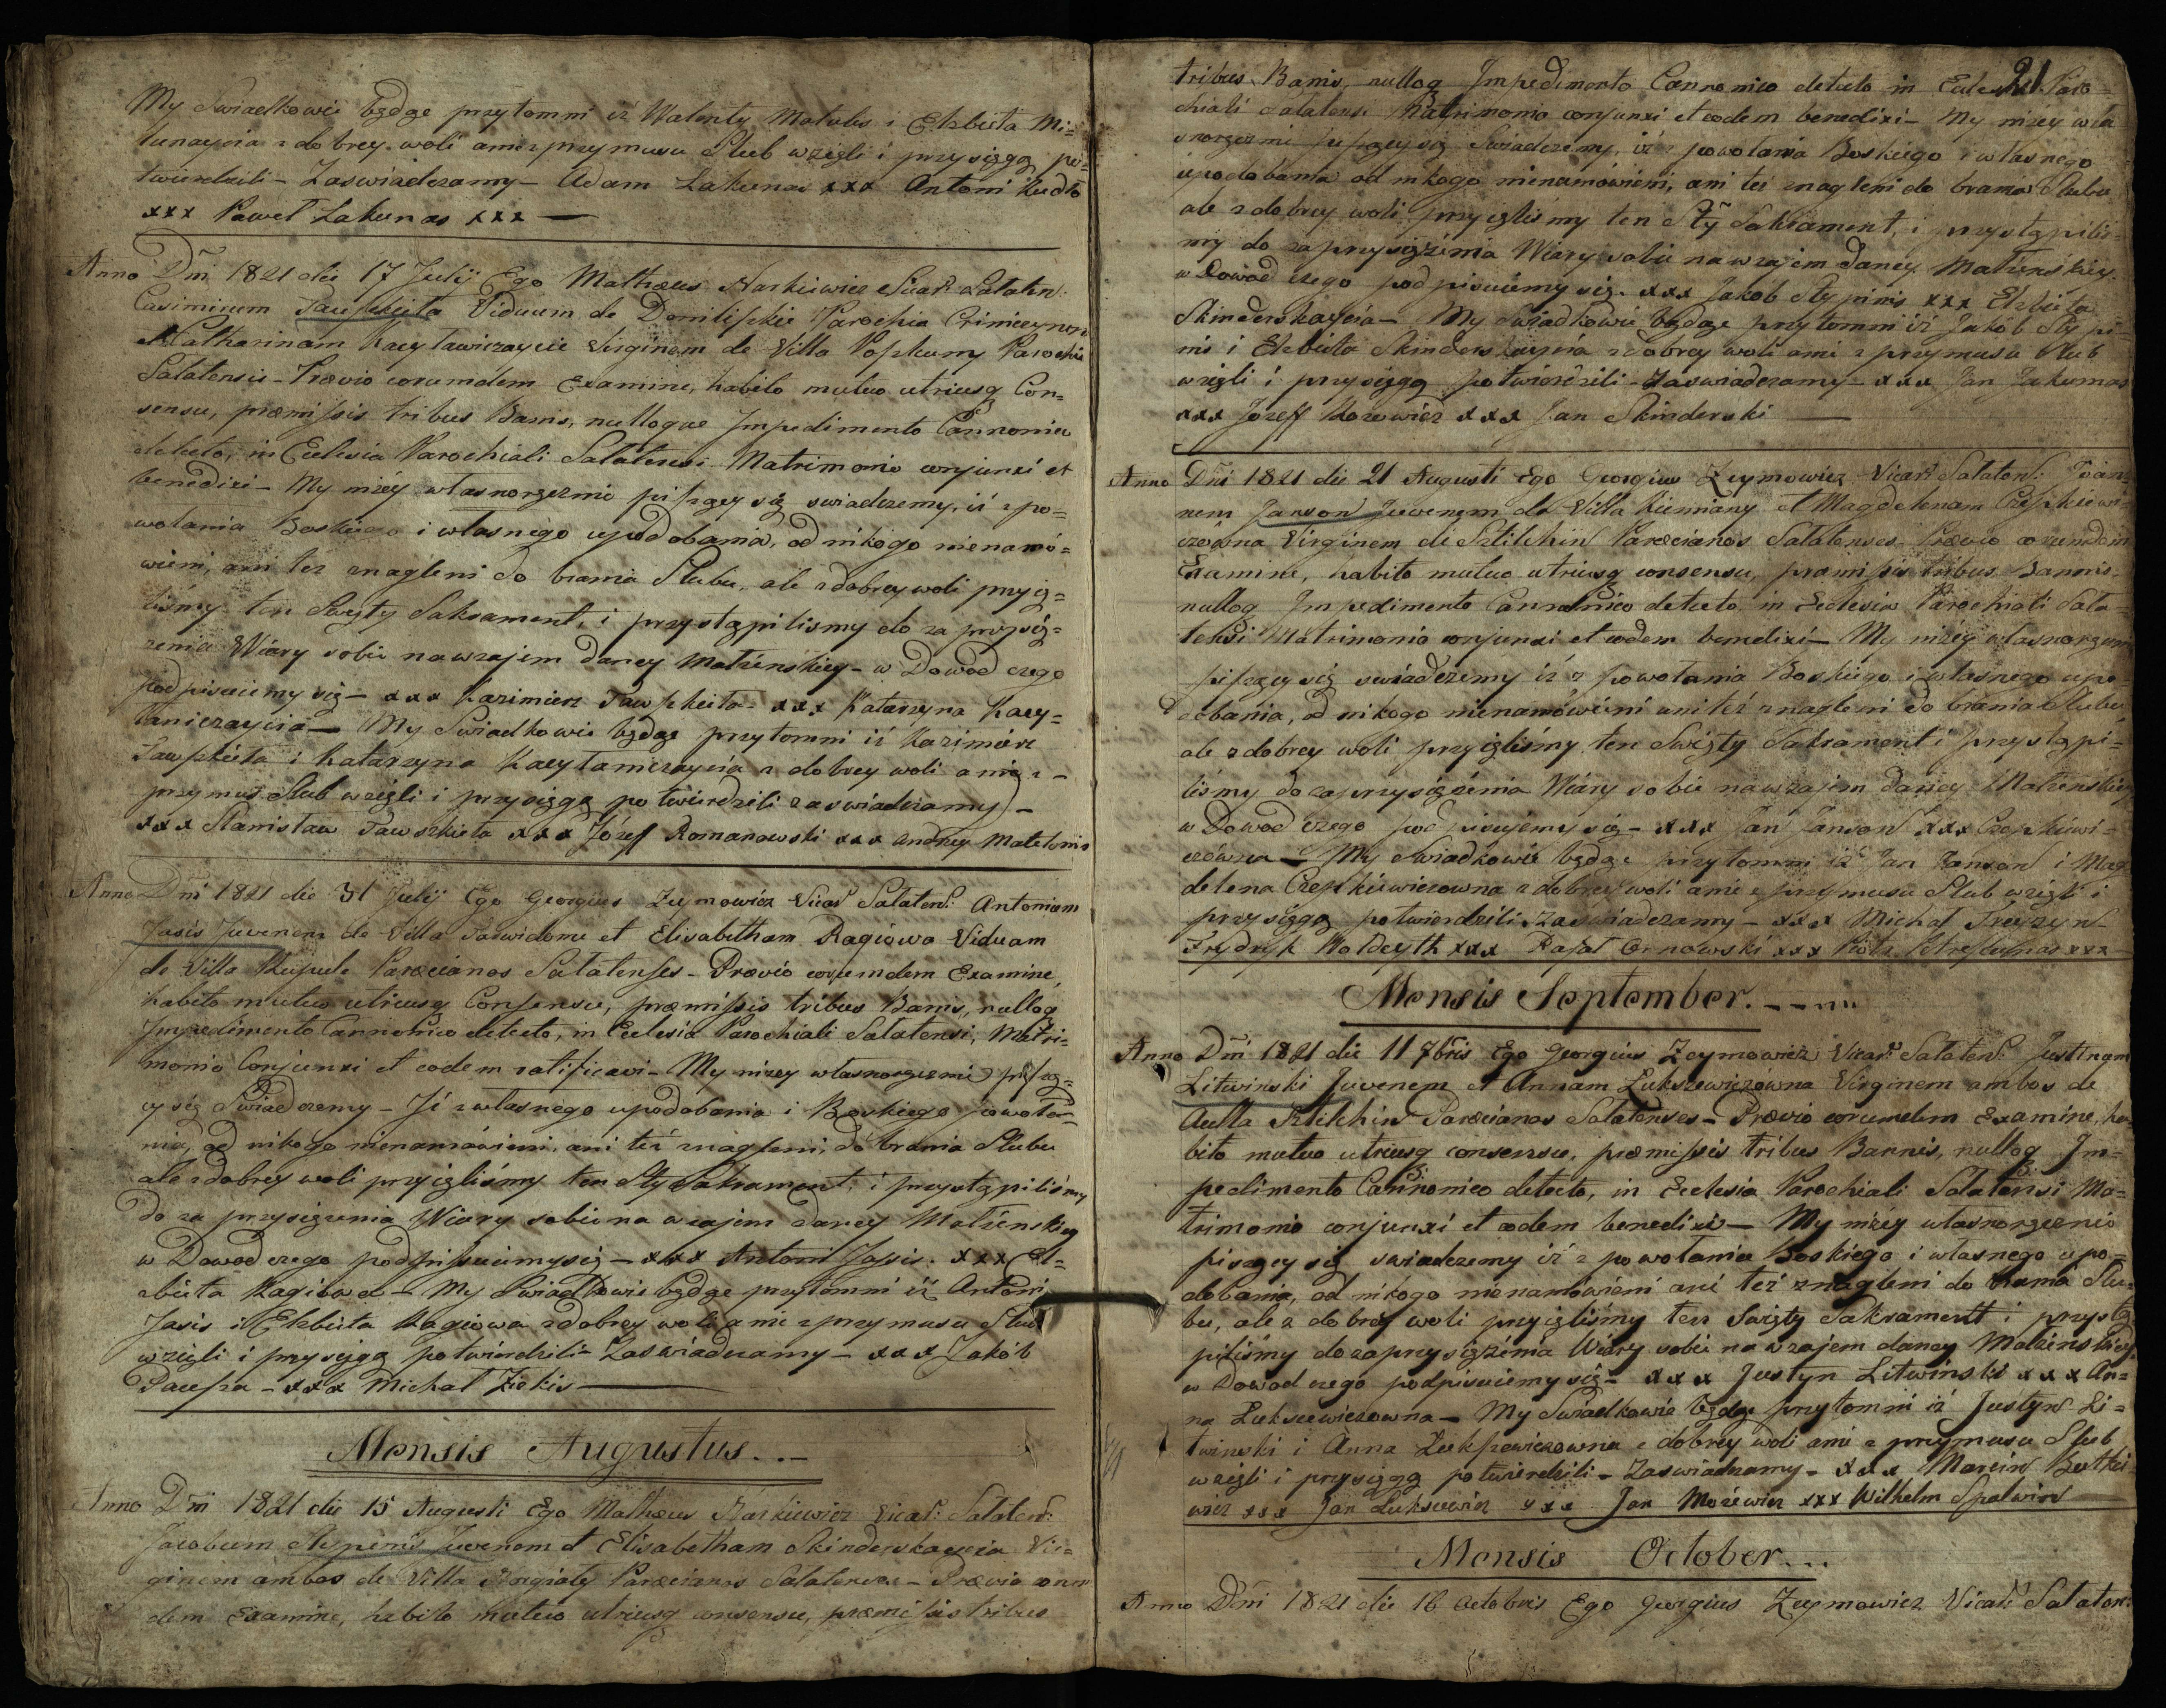 My Swiadkowie będąc przytomni iż Walenty Matulis i Elzbieta Mi=
lunaycia z dobrey woli ani z przymusu Slub wzięli i przysięgą po=
twierdzili - Zaswiadczamy - Adam Lakunas xxx Antoni Kudło
xxx Paweł Lakunas xxx —
Anno Dni 1821 die 17 Julij Ego Mathæus Narkiewicz Vicar Salaten:
Casimirum Pawszkieta Viduum de Parochia
et Catharinam Kacytawiczaycie Virginem de Villa Popkumy Parochiæ
Salatensis - Prævio eorumdem Examine, habito mutuo utriusq Con=
sensu, præmissis tribus Banis, nulloque Impedimento Cannonico
detecto, in Eclesia Parochiali Salatensi Matrimonio conjunxi et
benedixi - My niżey własnoręcznie piszący się swiadczemy, iż z po=
wołania Boskiego i własnego upodobania, od nikogo nienamó=
wieni, ani też znagleni do brania Slubu, ale z dobrey woli przyię=
liśmy ten Swięty Sakrament, i przystąpilismy do za przysię=
żenia Wiary sobie nawzajem daney Małżenskiey - w Dowod czego
podpisuiemy się - xxx Kazimierz Pawszkieta xxx Katarzyna Kacy=
taniczaycia — My Swiadkowie będąc przytomni iż Kazimierz
Pawszkieta i Katarzyna Kacytamczaycia z dobrey woli a nie z -
przymus Slub wzięli i przysięgą potwierdzili zaswiadczamy -
xxx Stanisław Pawszkieta xxx Józeff Romanowski xxx Andrzey Matelonis
Anno Dni 1821 die 31 Julij Ego Georgius Zeymowicz Vicar Salaten: Antonium
Jasis Juvenem de Villa et Elisabetham Ragiowa Viduam
de Villa Parœcianos Salatenses - Prævio eorumdem Examine,
habito mutuo utriusq Consensu, præmissis tribus Banis, nulloq
Impedimento Cannonico detecto, in Eclesia Parochiali Salatensi, Matri=
monio Conjunxi et eodem ratificavi - My niżey własnoręcznie piszą=
cy się Swiadczemy - Iż z własnego upodobania i Boskiego powoła=
nia, od nikogo nienamówieni, ani też znagleni, do brania Slubu
ale z dobrey woli przyięliśmy ten Sty Sakrament, i przystąpiliśmy
do za przysiężenia Wiary sobie na wzajem daney Małżenskiey
w Dowod czego podpisuiemy się - xxx Antoni Jassis. xxx El=
zbieta Ragiowa - My Swiadkowie będąc przytomni iż Antoni
Jasis i Elzbieta Ragiowa z dobrey woli a nie z przymusu Slub
wzięli i przysięgą potwierdzili - Zaświadczamy - xxx Jakób
xxx Michał Zickis —
Mensis Augustus...-
Anno Dni 1821 die 15 Augusti Ego Mathæus Narkiewicz Vicar: Salaten:
Jacobum Stypinis Juvenem et Elisabetham Skinderskaycia Vir=
ginem ambos de Villa Parœcianos Salatenses - Prævio eorum
dem Examine, habito mutuo utriusq consensu, præmissis tribus
21
tribus Banis, nulloq Impedimento Cannonico detecto in Eclesia Paro=
chiali Salatensi Matrimonio conjunxi et eodem benedixi - My niżey wła
snoręcznie piszący się Swiadczemy, iż z powołania Boskiego i własnego
upodobania od nikogo nienamówieni, ani też znagleni do brania Slubu
ale z dobrey woli przyięliśmy ten Sty Sakrament, i przystąpiliś=
my do zaprzysiężenia Wiary sobie nawzajem daney Małżenskiey.
w Dowod czego podpisuiemy się. xxx Jakob Stypinis xxx Elzbieta
Skinderskaycia - My Swiadkowie będąc przytomni iż Jakób Stypi
nis i Elzbieta Skinderskaycia z dobrey woli ani z przymusu Slub
wzięli i przysięgą potwierdzili - Zaswiadczamy - xxx Jan Jakumas
xxx Jozeff Kozowicz xxx Jan Skinderski —
Anno Dni 1821 die 21 Augusti Ego Georgius Zeymowicz Vicar Salaten: Joan=
nem Janson Juvenem de Villa Kiemiany et Magdelenam Czepkiewi=
czówna Virginem de Sztilchin Parœcianos Salatenses Prævio eorumdem
Examine, habito mutuo utriusq consensu, præmissis tribus Bannis,
nulloq Impedimento Cannonico detecto in Ecclesia Parochiali Sala=
tensi Matrimonio conjunxi et eodem benedixi - My niżey własnoręcznie
piszący się swiadczemy iż z powołania Boskiego i własnego upo=
dobania, od nikogo nienamówieni ani też znagleni do brania Slubu
ale z dobrey woli przyięliśmy ten Swięty Sakrament i przystąpi=
liśmy do zaprzysiężenia Wiary sobie nawzajem daney Małżenskiey
w Dowod czego podpisujemy się - xxx Jan Janson xxx Czepkiewi=
czówna - My Swiadkowie będąc przytomni iż Jan Janson i Mag=
delena Czepkiewiczowna z dobrey woli ani z przymusu Slub wzięli i
przysięgą potwierdzili. Zaświadczamy - xxx Michał
Frydryk xxx Rafał Ornowski xxx Piotr xxx
Mensis September. - - - - -
Anno Dni 1821 die 11 7bris Ego Georgius Zeymowicz Vicar: Salaten: Justinum
Litwinski Juvenem et Annam Łukszewiczówna Virginem ambos de
Aulla Sztilchin Parœcianos Salatenses - Prævio eorumdem Examine, ha=
bito mutuo utriusq consensu, præmissis tribus Bannis, nulloq Im=
pedimento Cannonico detecto, in Ecclesia Parochiali Salatensi Ma=
trimonio conjunxi et eodem benedixi - My niżey własnoręcznie
piszący się swiadczemy iż z powołania Boskiego i własnego upo=
dobania, od nikogo nienamówieni ani też znagleni do brania Slu=
bu, ale z dobrey woli przyięliśmy ten Swięty Sakrament i przystą
piliśmy do zaprzysiężenia Wiary sobie nawzajem daney Małżenskiey
w Dowod czego podpisuiemy się - xxx Justyn Litwinski xxx An=
na Łukszewiczowna - My Swiadkowie będąc przytomni iż Justyn Li=
twinski i Anna Łukszewiczowna z dobrey woli ani z przymusu Slub
wzięli i przysięgą potwierdzili - Zaswiadczamy - xxx Marcin Butkie
wicz xxx Jan Łukszewicz xxx Jan Mozewicz xxx Wilhelm Spalwin
Mensis October...
Anno Dni 1821 die 16 Octobris Ego Georgius Zeymowicz Vicar: Salaten: